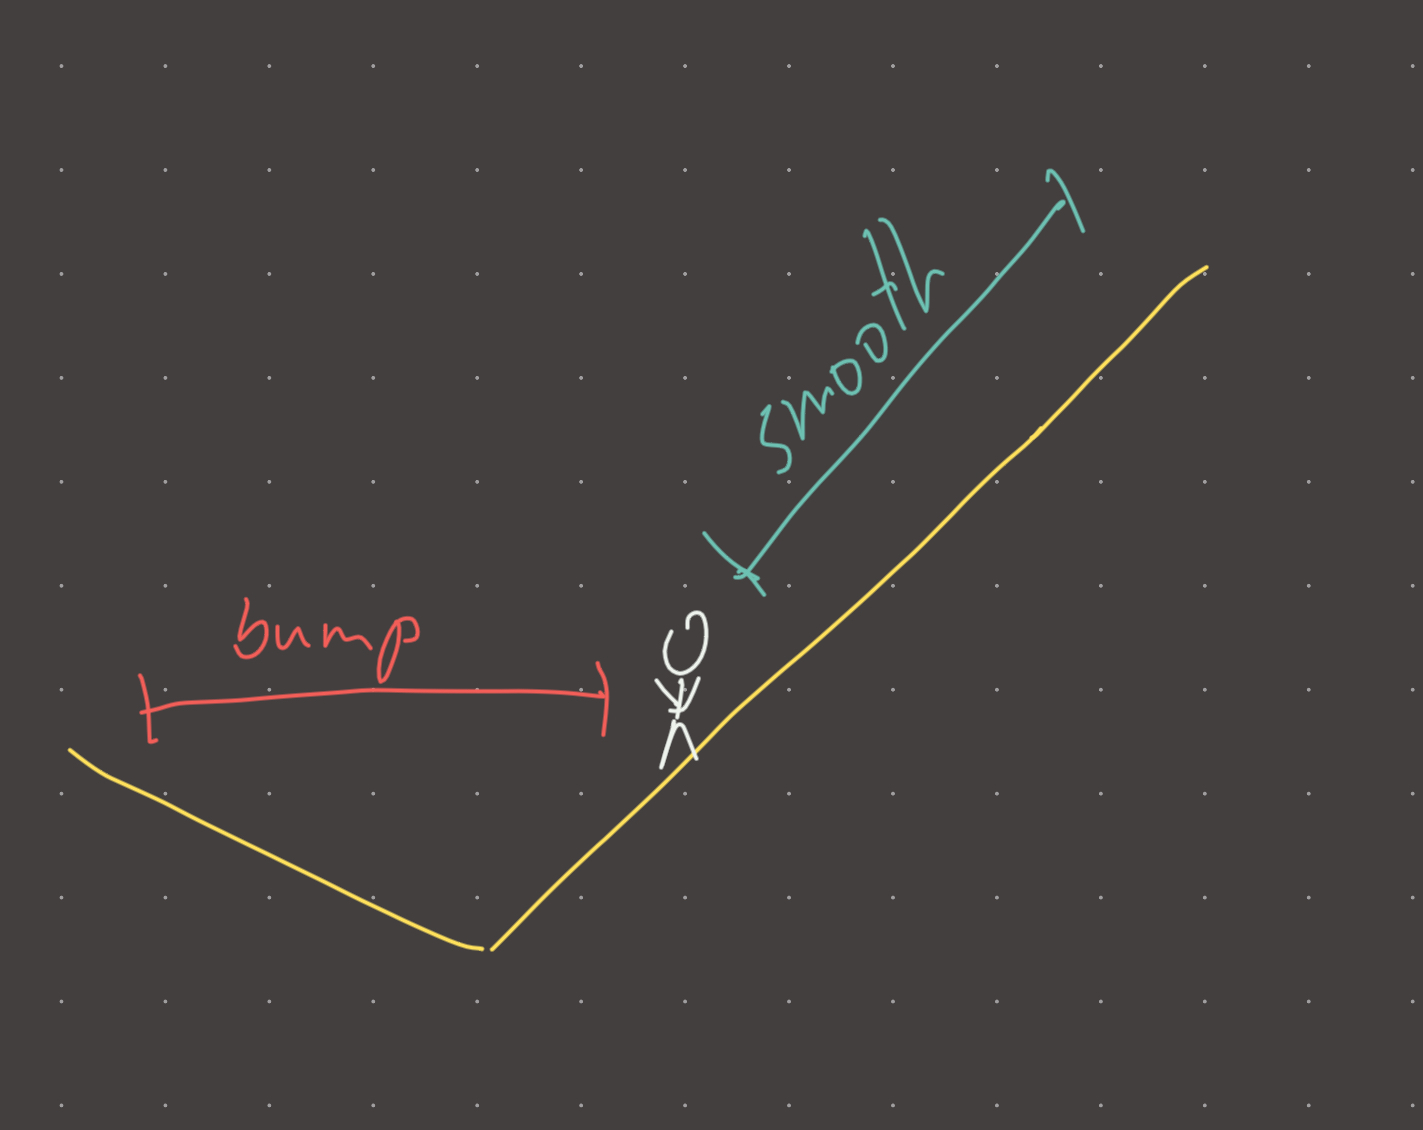 smooth
bump